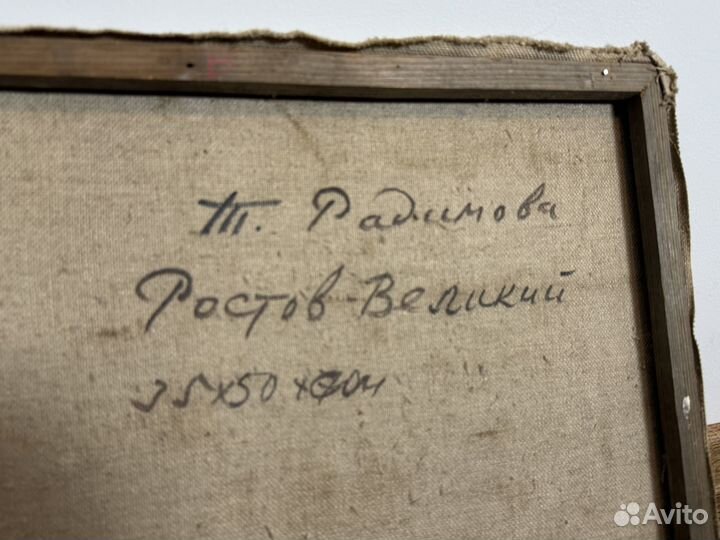 Т. Радимова
Ростов-Великий
35х50
Avito